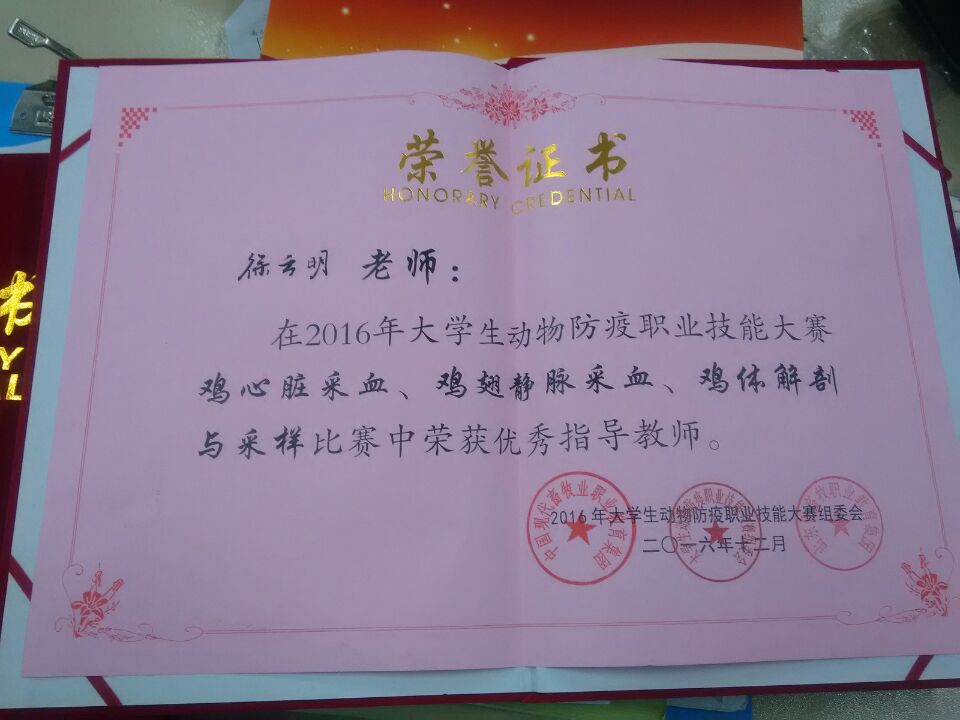 荣誉证书
HONORARY CREDENTIAL
徐云明 老师：
在2016年大学生动物防疫职业技能大赛
鸡心脏采血、鸡翅静脉采血、鸡体解剖
与采样比赛中荣获优秀指导教师。
中国现代畜牧业职业教育集团
2016年大学生动物防疫职业技能大赛组委会
二〇一六年十二月